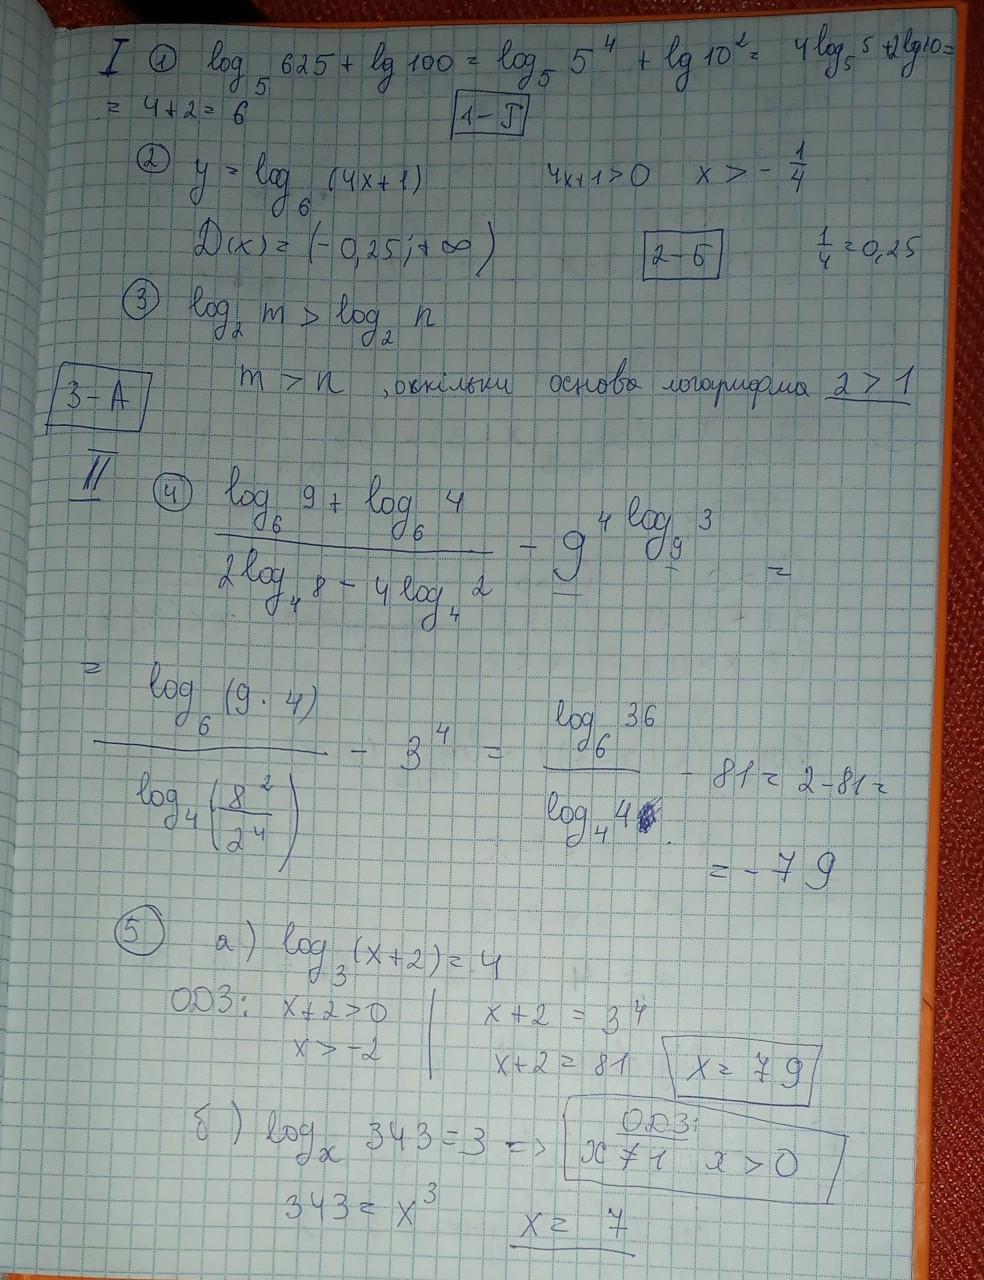 I ① log₅ 625 + lg 100 = log₅ 5⁴ + lg 10² = 4log₅ 5 + 2lg10 =
= 4+2 = 6 1 - Г
② y = log₆ (4x+1) 4x+1>0 x > - 1/4
D(x) = (-0,25; +∞) 2 - Б 1/4 = 0,25
③ log₂ m > log₂ n
3 - А m > n , оскільки основа логарифма 2 > 1
II ④ (log₆ 9 + log₆ 4)/(2log₄ 8 - 4log₄ 2) - 9^(4 log₉ 3) =
= log₆ (9 · 4)/log₄ (8²/2⁴) - 3⁴ = log₆ 36/log₄ 4 - 81 = 2 - 81 =
= - 79
⑤ а) log₃ (x+2) = 4
ОДЗ: x+2>0 | x+2 = 3⁴
x > -2 | x+2 = 81 x = 79
б) logₓ 343 = 3 => ОДЗ: x ≠ 1 x > 0
343 = x³ x = 7